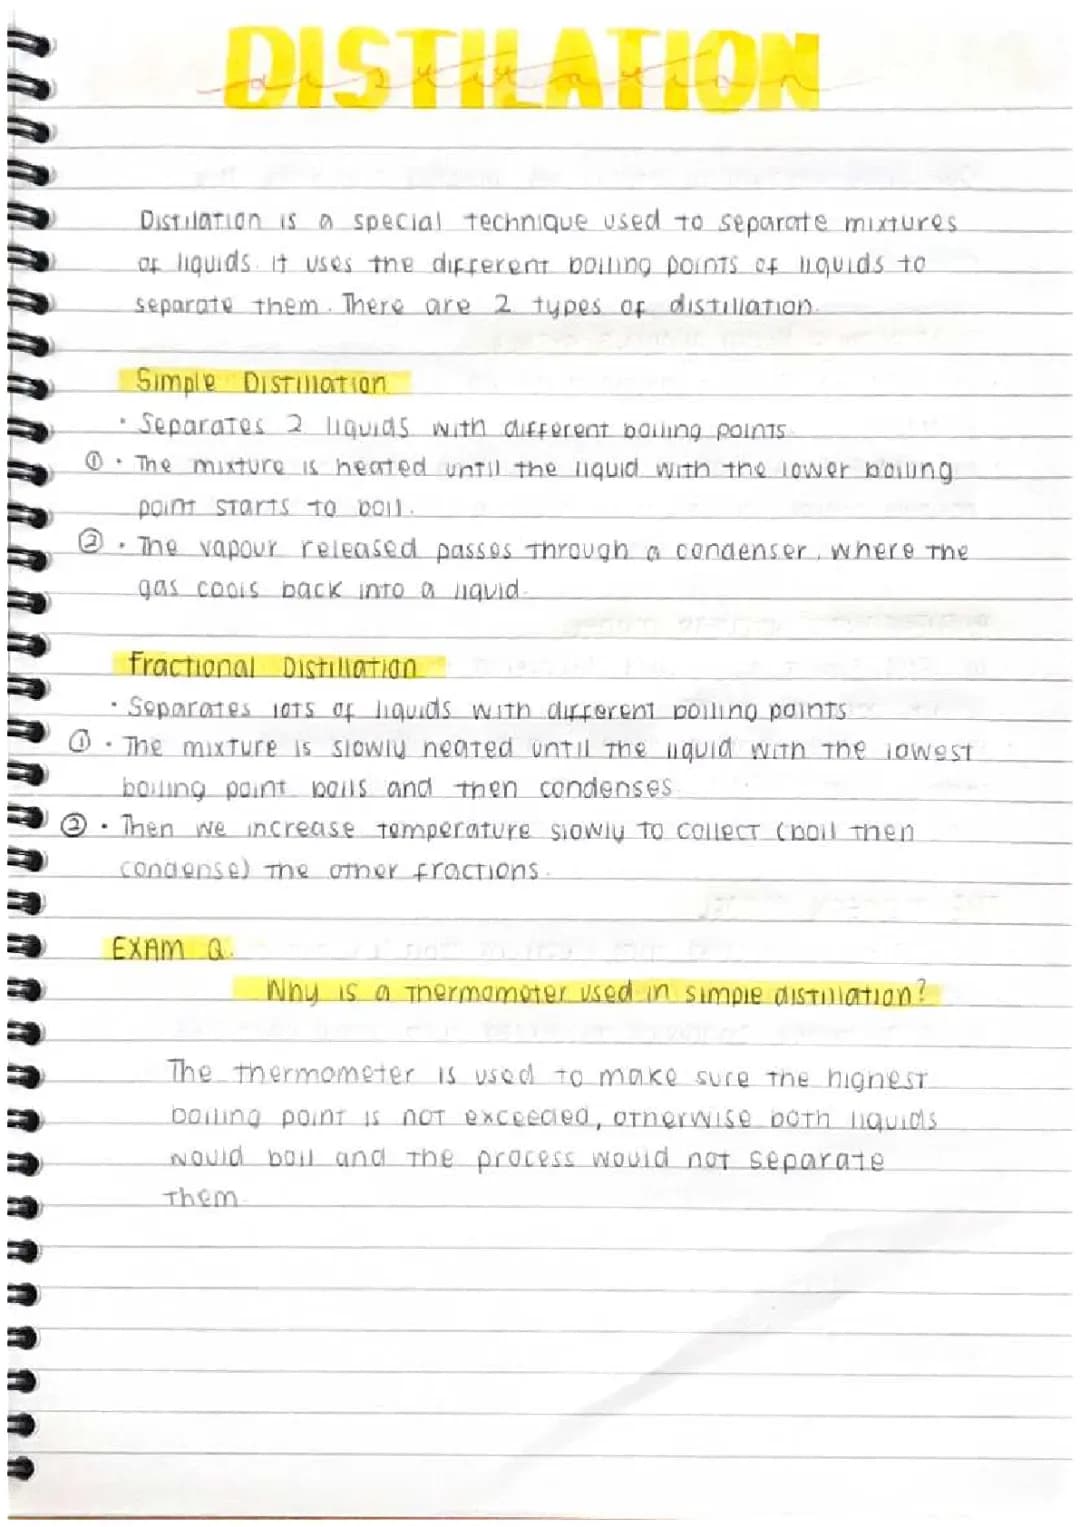 DISTILATION
distilation
Distilation is a special technique used to separate mixtures
of liquids. it uses the different boiling points of liquids to
separate them. There are 2 types of distillation.
Simple Distillation
· Separates 2 liquids with different boiling points
① · The mixture is heated until the liquid with the lower boiling
point starts to boil.
② · The vapour released passes through a condenser, where the
gas cools back into a liquid.
Fractional Distillation
· Separates lots of liquids with different boiling points
① · The mixture is slowly heated until the liquid with the lowest
boiling point boils and then condenses
② · Then we increase temperature slowly to collect (boil then
condense) the other fractions.
EXAM Q.
Why is a thermometer used in simple distillation?
The thermometer is used to make sure the highest
boiling point is not exceeded, otherwise both liquids
would boil and the process would not separate
them.